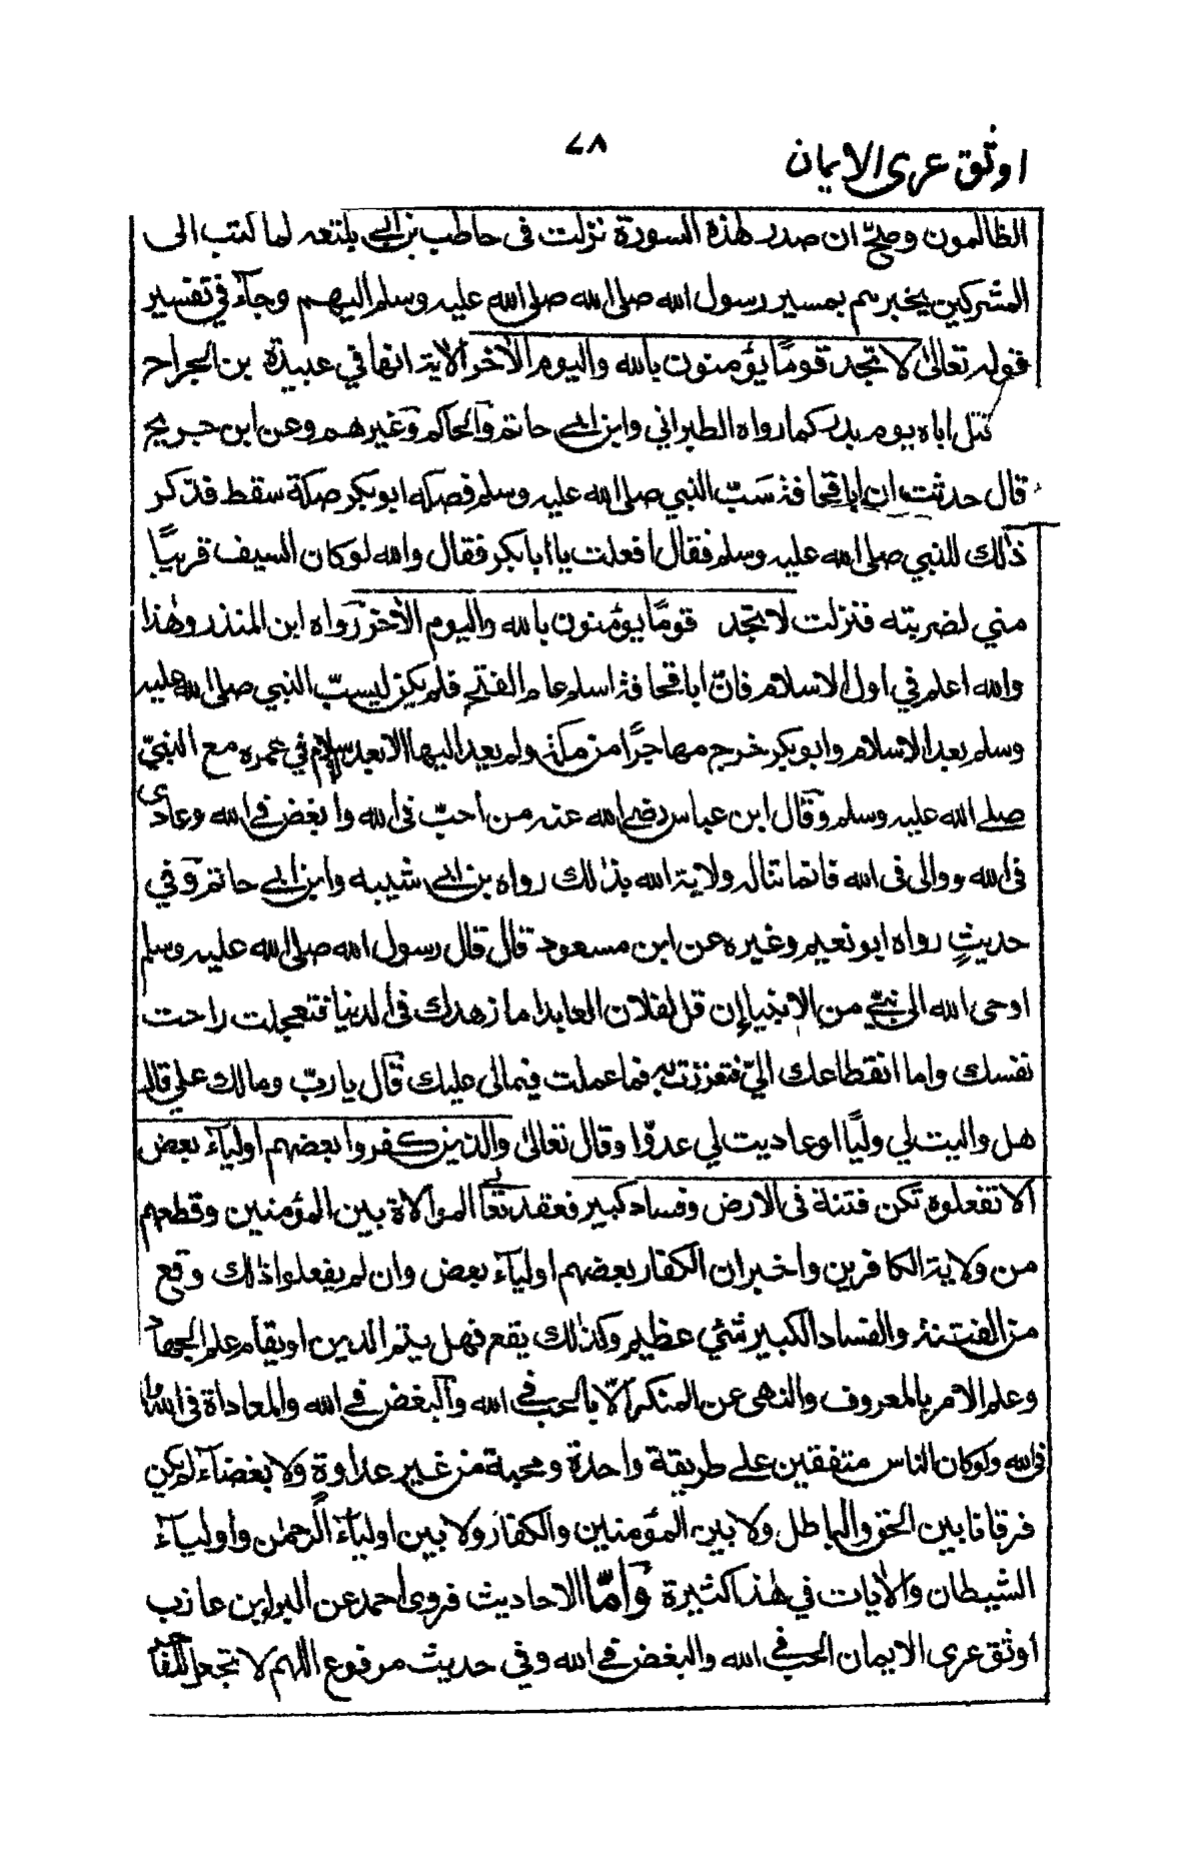 اوثق عرى الايمان
٧٨
الظالمون وصحّ ان صدر هذه السورة نزلت فى حاطب بن ابي بلتعه لما كتب الى
المشركين يخبرهم بمسير رسول الله صلى الله صلى الله عليه وسلم اليهم وجآء في تفسير
قوله تعالى لا تجد قومًا يؤمنون بالله واليوم الآخر الآية انها في عبيدة بن الجراح
قتل اباه يوم بدر كما رواه الطبراني وابن ابي حاتم والحاكم وغيرهم وعن ابن جريج
قال حدثت ان ابا قحافة سَبّ النبي صلى الله عليه وسلم فصكه ابو بكر صكة سقط فذكر
ذلك للنبي صلى الله عليه وسلم فقال افعلت يا ابا بكر فقال والله لو كان السيف قريبًا
مني لضربته فنزلت لا تجد قومًا يؤمنون بالله واليوم الآخر رواه ابن المنذر وهذا
والله اعلم في اول الاسلام فانّ ابا قحافة اسلم عام الفتح فلم يكن ليسبّ النبي صلى الله عليه
وسلم بعد الاسلام وابو بكر خرج مهاجرًا من مكة ولم يعد اليها الا بعد سلام في عمره مع النبيّ
صلى الله عليه وسلم وقال ابن عباس رضي الله عنه من أحبّ فى الله وأبغض في الله وعادى
فى الله ووالى فى الله فانما تنال ولاية الله بذلك رواه بن ابي شيبه وابن ابي حاتم وفي
حديثٍ رواه ابو نعيم وغيره عن ابن مسعود قال قال رسول الله صلى الله عليه وسلم
اوحى الله الى نبيّ من الانبيا إن قل لفلان العابد اما زهدك فى الدنيا فتعجلت راحت
نفسك واما انقطاعك اليّ فتعززت به فما عملت فيما لى عليك قال يا ربّ وما لك علي قال
هل واليت لي وليًّا او عاديت لي عدوًّا وقال تعالى والذين كفروا بعضهم اوليآء بعض
الا تفعلوه تكن فتنة فى الارض وفساد كبير فعقد تعالى الموالاة بين المؤمنين وقطعهم
من ولاية الكافرين واخبر ان الكفار بعضهم اوليآء بعض وان لم يفعلوا ذلك وقع
من الفتنة والفساد الكبير شئي عظيم وكذلك يقع فهل يتم الدين او يقام علم الجهاد
وعلم الامر بالمعروف والنهى عن المنكر الّا بالحب في الله والبغض في الله والمعاداة فى الله
فى الله ولو كان الناس متفقين على طريقة واحدة ومحبة من غير عداوة ولا بغضآء لم يكن
فرقانا بين الحق والباطل ولا بين المؤمنين والكفار ولا بين اوليآء الرحمٰن واوليآء
الشيطان والآيات في هذا كثيرة وأمّا الاحاديث فروى احمد عن البرا بن عازب
أوثق عرى الايمان الحب في الله والبغض في الله وفي حديث مرفوع اللهم لا تجعل للفاجر